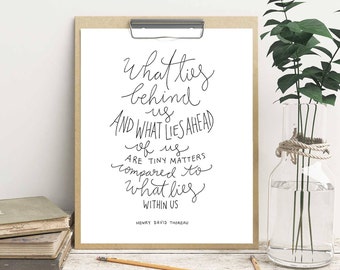 What lies
behind
us
AND WHAT LIES AHEAD
of us
ARE TINY MATTERS
compared to
what lies
WITHIN US
HENRY DAVID THOREAU